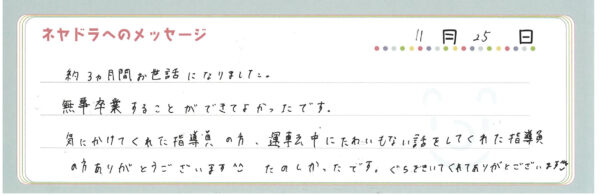 ネヤドラへのメッセージ
11月25日
約3ヵ月間お世話になりました。
無事卒業することができてよかったです。
気にかけてくれた指導員の方、運転中にたわいもない話をしてくれた指導員
の方ありがとうございます^^ たのしかったです。ぐちきいてくれてありがとございます